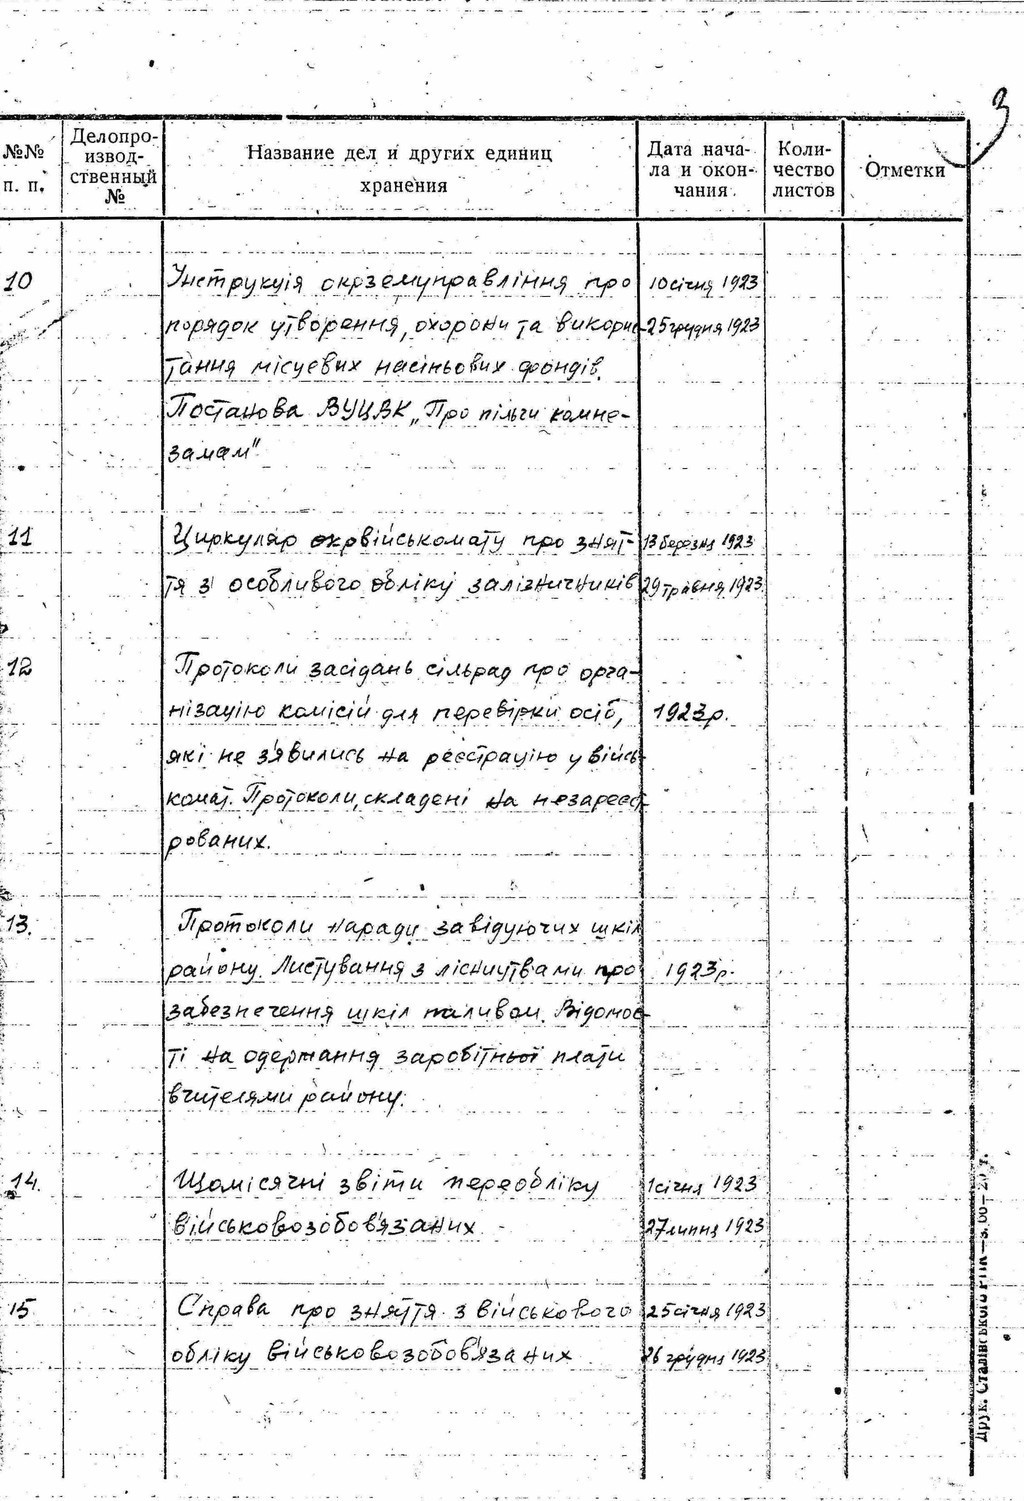 3
№№ п. п.
Делопро-
извод-
ственный
№
Название дел и других единиц
хранения
Дата нача-
ла и окон-
чания
Коли-
чество
листов
Отметки
10 Інструкція окрземуправління про 10 січня 1923
порядок утворення, охорони та викорис- 25 грудня 1923
тання місцевих насіньових фондів.
Постанова ВУЦВК „Про пільги комне-
замам"
11 Циркуляр окрвійськомату про знят- 13 березня 1923
тя з особливого обліку залізничників 29 травня 1923
12 Протоколи засідань сільрад про орга-
нізацію комісій для перевірки осіб, 1923р.
які не з'явились на реєстрацію у війсь-
комат. Протоколи, складені на незареєст-
рованих.
13. Протоколи наради завідуючих шкіл
району. Листування з лісництвами про 1923р.
забезпечення шкіл паливом. Відомос-
ті на одержання заробітньої плати
вчителями району.
14. Щомісячні звіти переобліку 1 січня 1923
військовозобов'язаних 27 липня 1923
15 Справа про зняття з військового 25 січня 1923
обліку військовозобов'язаних 26 грудня 1923
Друк. Сталінського